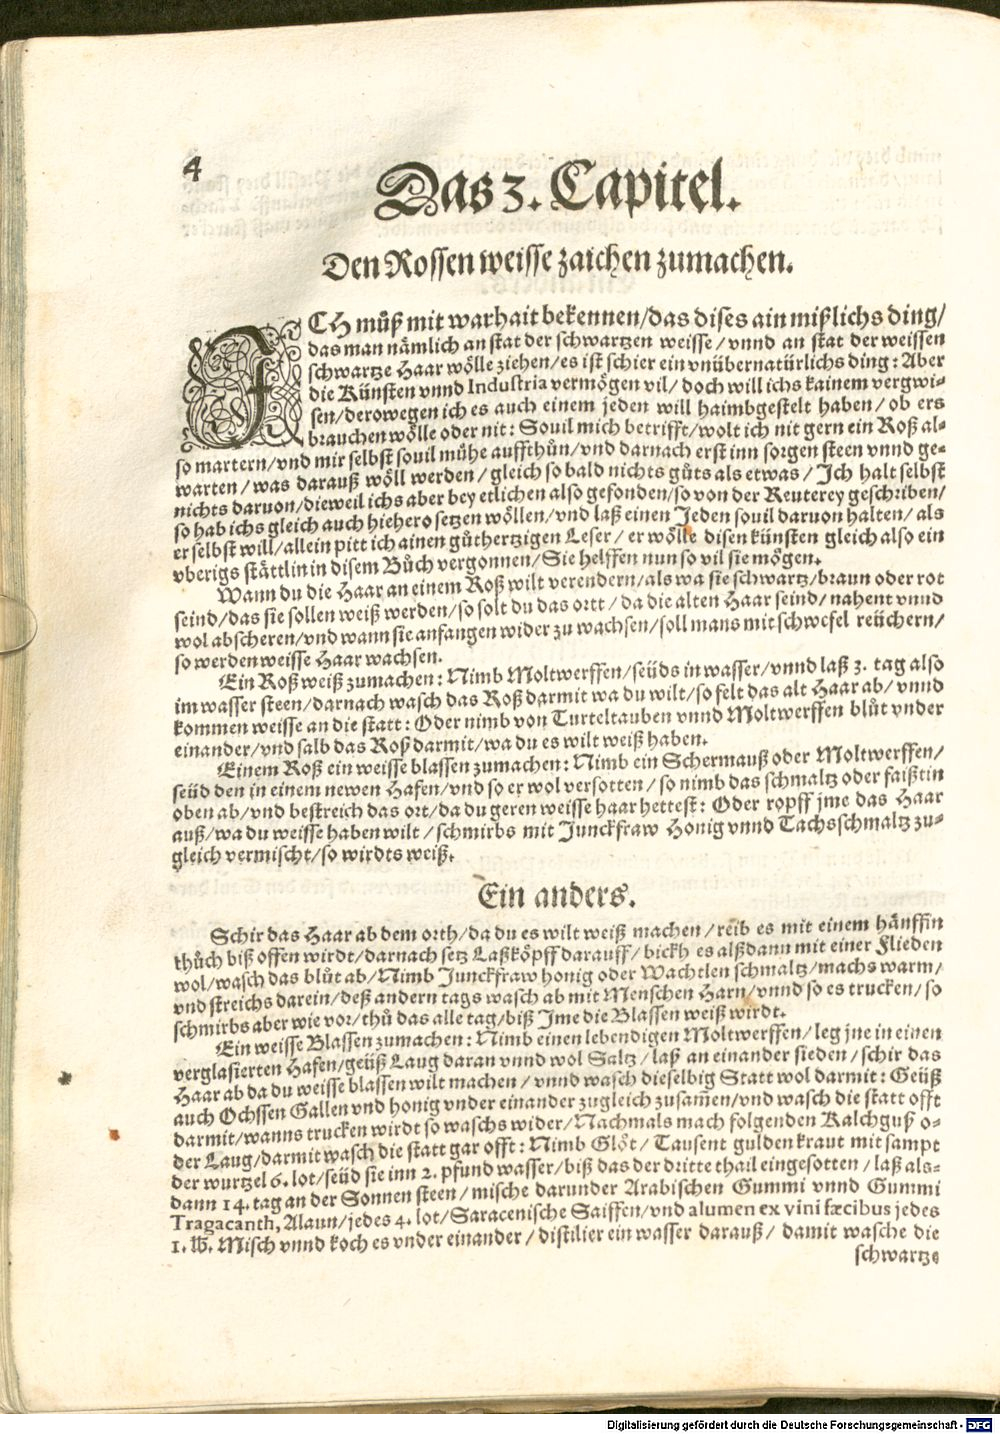 4
Das 3. Capitel.
Den Rossen weisse zaichen zumachen.
ICH můß mit warhait bekennen/das dises ain mißlichs ding/
das man nämlich an stat der schwartzen weisse/vnnd an stat der weissen
schwartze Haar wölle ziehen/es ist schier ein vnübernatürlichs ding: Aber
die Künsten vnnd Industria vermögen vil/doch will ichs kainem vergwi-
sen/derowegen ich es auch einem jeden will haimbgestelt haben/ob ers
brauchen wölle oder nit: Souil mich betrifft/wolt ich nit gern ein Roß al-
so martern/vnd mir selbst souil mühe auffthůn/vnd darnach erst inn sorgen steen vnnd ge-
warten/was darauß wöll werden/gleich so bald nichts gůts als etwas/Ich halt selbst
nichts daruon/dieweil ichs aber bey etlichen also gefonden/so von der Reuterey geschriben/
so hab ichs gleich auch hiehero setzen wöllen/vnd laß einen Jeden souil daruon halten/als
er selbst will/allein pitt ich ainen gůthertzigen Leser/er wölle disen künsten gleich also ein
vberigs stättlin in disem Bůch vergonnen/Sie helffen nun so vil sie mögen.
Wann du die Haar an einem Roß wilt verendern/als wa sie schwartz/braun oder rot
seind/das sie sollen weiß werden/so solt du das ortt/da die alten Haar seind/nahent vnnd
wol abscheren/vnd wann sie anfangen wider zu wachsen/soll mans mit schwefel reüchern/
so werden weisse Haar wachsen.
Ein Roß weiß zumachen: Nimb Moltwerffen/seüds in wasser/vnnd laß 3. tag also
im wasser steen/darnach wasch das Roß darmit wa du wilt/so felt das alt Haar ab/vnnd
kommen weisse an die statt: Oder nimb von Turteltauben vnnd Moltwerffen blůt vnder
einander/vnd salb das Roß darmit/wa du es wilt weiß haben.
Einem Roß ein weisse blassen zumachen: Nimb ein Schermauß oder Moltwerffen/
seüd den in einem newen Hafen/vnd so er wol versotten/so nimb das schmaltz oder faißt in
oben ab/vnd bestreich das ort/da du geren weisse haar hettest: Oder ropff jme das Haar
auß/wa du weisse haben wilt/schmirbs mit Junckfraw Honig vnnd Tachsschmaltz zu-
gleich vermischt/so wirdts weiß.
Ein anders.
Schir das Haar ab dem orth/da du es wilt weiß machen/reib es mit einem hänffin
thůch biß offen wirdt/darnach setz Laßköpff darauff/bickh es alßdann mit einer Flieden
wol/wasch das blůt ab/Nimb Junckfraw honig oder Wachtlen schmaltz/machs warm/
vnd streichs darein/deß andern tags wasch ab mit Menschen Harn/vnnd so es trucken/so
schmirbs aber wie vor/thů das alle tag/biß Jme die Blassen weiß wirdt.
Ein weisse Blassen zumachen: Nimb einen lebendigen Moltwerffen/leg jne in einen
verglasierten Hafen/geüß Laug daran vnnd wol Saltz/laß an einander sieden/schir das
Haar ab da du weisse blassen wilt machen/vnnd wasch dieselbig Statt wol darmit: Geüß
auch Ochssen Gallen vnd honig vnder einander zugleich zusam̃en/vnd wasch die statt offt
darmit/wanns trucken wirdt so waschs wider/Nachmals mach folgenden Kalchguß o-
der Laug/darmit wasch die statt gar offt: Nimb Glöt/Tausent guldenkraut mit sampt
der wurtzel 6. lot/seüd sie inn 2. pfund wasser/biß das der dritte thail eingesotten/laß als-
dann 14. tag an der Sonnen steen/mische darunder Arabischen Gummi vnnd Gummi
Tragacanth, Alaun/jedes 4. lot/Saracenische Saiffen/vnd alumen ex vini fæcibus jedes
1. ℔. Misch vnnd koch es vnder einander/distilier ein wasser darauß/damit wasche die
schwartze
Digitalisierung gefördert durch die Deutsche Forschungsgemeinschaft - DFG